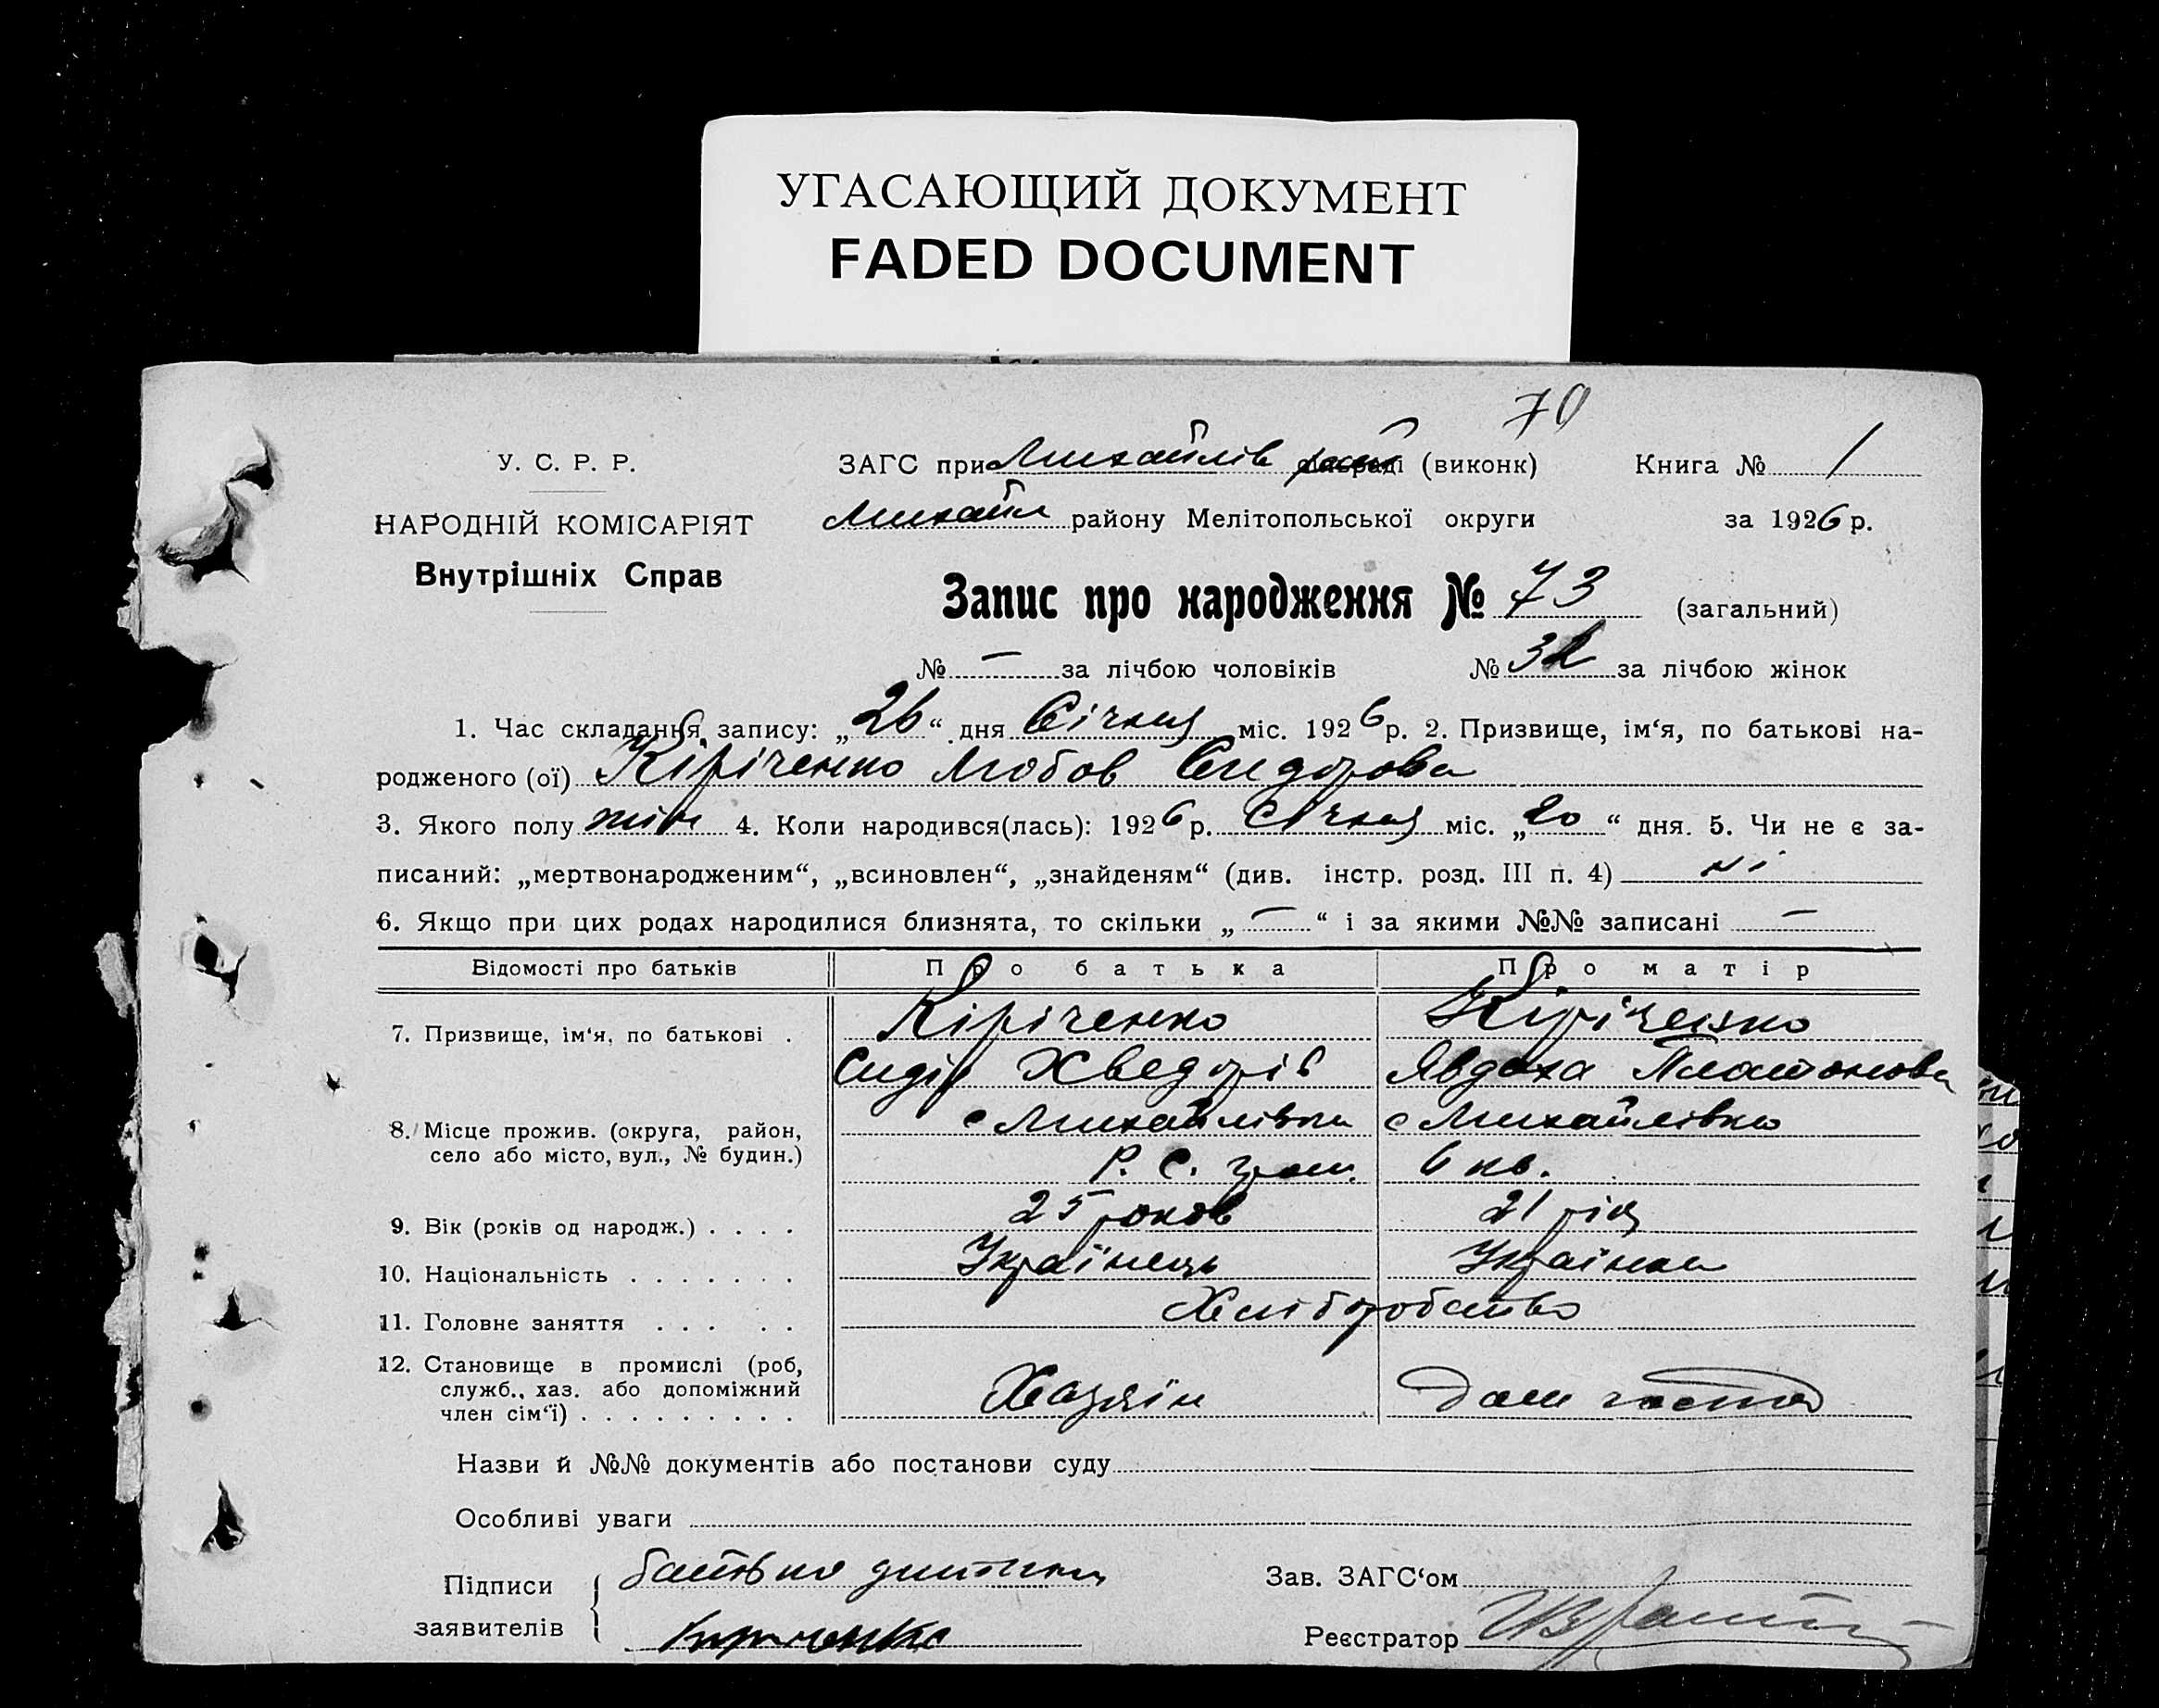 УГАСАЮЩИЙ ДОКУМЕНТ
FADED DOCUMENT
70
У. С. Р. Р.
НАРОДНІЙ КОМІСАРІЯТ
Внутрішніх Справ
ЗАГС при Михайлів рай (виконк) Книга № 1
Михайл району Мелітопольської округи за 1926 р.
Запис про народження № 73 (загальний)
№ — за лічбою чоловіків № 32 за лічбою жінок
1. Час складання запису: „26“ дня Січня міс. 1926 р. 2. Призвище, ім‘я, по батькові на-
родженого (ої) Кіріченко Любов Сидорова
3. Якого полу жін 4. Коли народився(лась): 1926 р. Січня міс. „20“ дня. 5. Чи не є за-
писаний: „мертвонародженим“, „всиновлен“, „знайденям“ (див. інстр. розд. III п. 4) ні
6. Якщо при цих родах народилися близнята, то скільки „—“ і за якими №№ записані —
Відомості про батьків Про батька Про матір
7. Призвище, ім‘я, по батькові . Кіріченко Кіріченко
Сидір Хведорів Явдоха Платонова
8. Місце прожив. (округа, район, с Михайлівка с Михайлівка
село або місто, вул., № будин.) Р. С. гром. 6 кв.
9. Вік (років од народж.) . . . . 25 роков 21 рік
10. Національність . . . . . . . Українець Українка
11. Головне заняття . . . . . Хліборобство
12. Становище в промислі (роб,
служб., хаз. або допоміжний
член сім‘ї) . . . . . . . . . Хазяїн
Назви й №№ документів або постанови суду
Особливі уваги
Підписи батько дитини Зав. ЗАГС‘ом
заявителів Кириченко Реєстратор